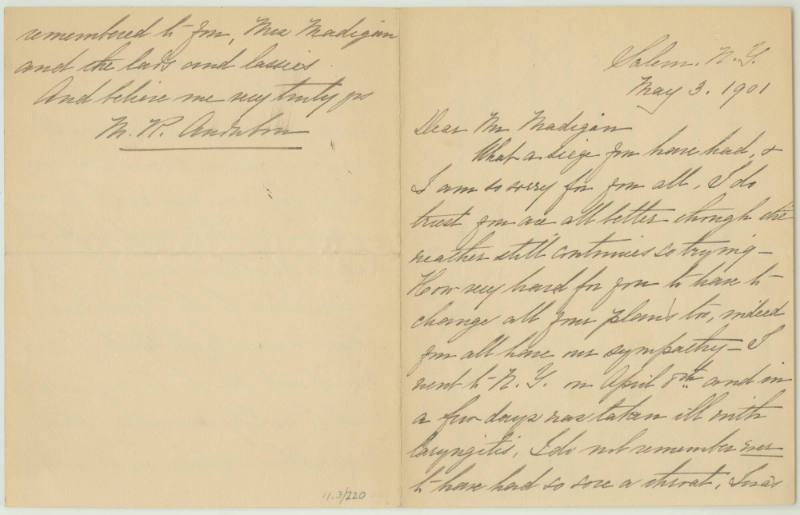 remembered to you, Mrs Madigan
and the lads and lassies.
And believe me very truly yrs
M. R. Audubon
11.3/220
Salem. N. Y.
May 3. 1901
Dear Mr Madigan
What a siege you have had, &
I am so sorry for you all. I do
trust you are all better though the
weather still continues so trying –
How very hard for you to have to
change all your plans too, indeed
you all have our sympathy – I
went to N. Y. on April 8th and in
a few days was taken ill with
laryngitis. I do not remember ever
to have had so sore a throat, I was